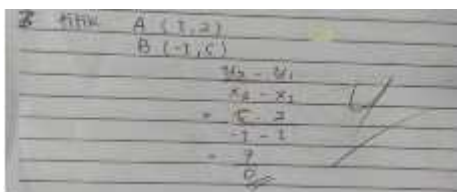 titik A (1,2)
B (-1,5)
y₂ - y₁
x₂ - x₁
= 5 - 2
-1 - 1
= 7
0